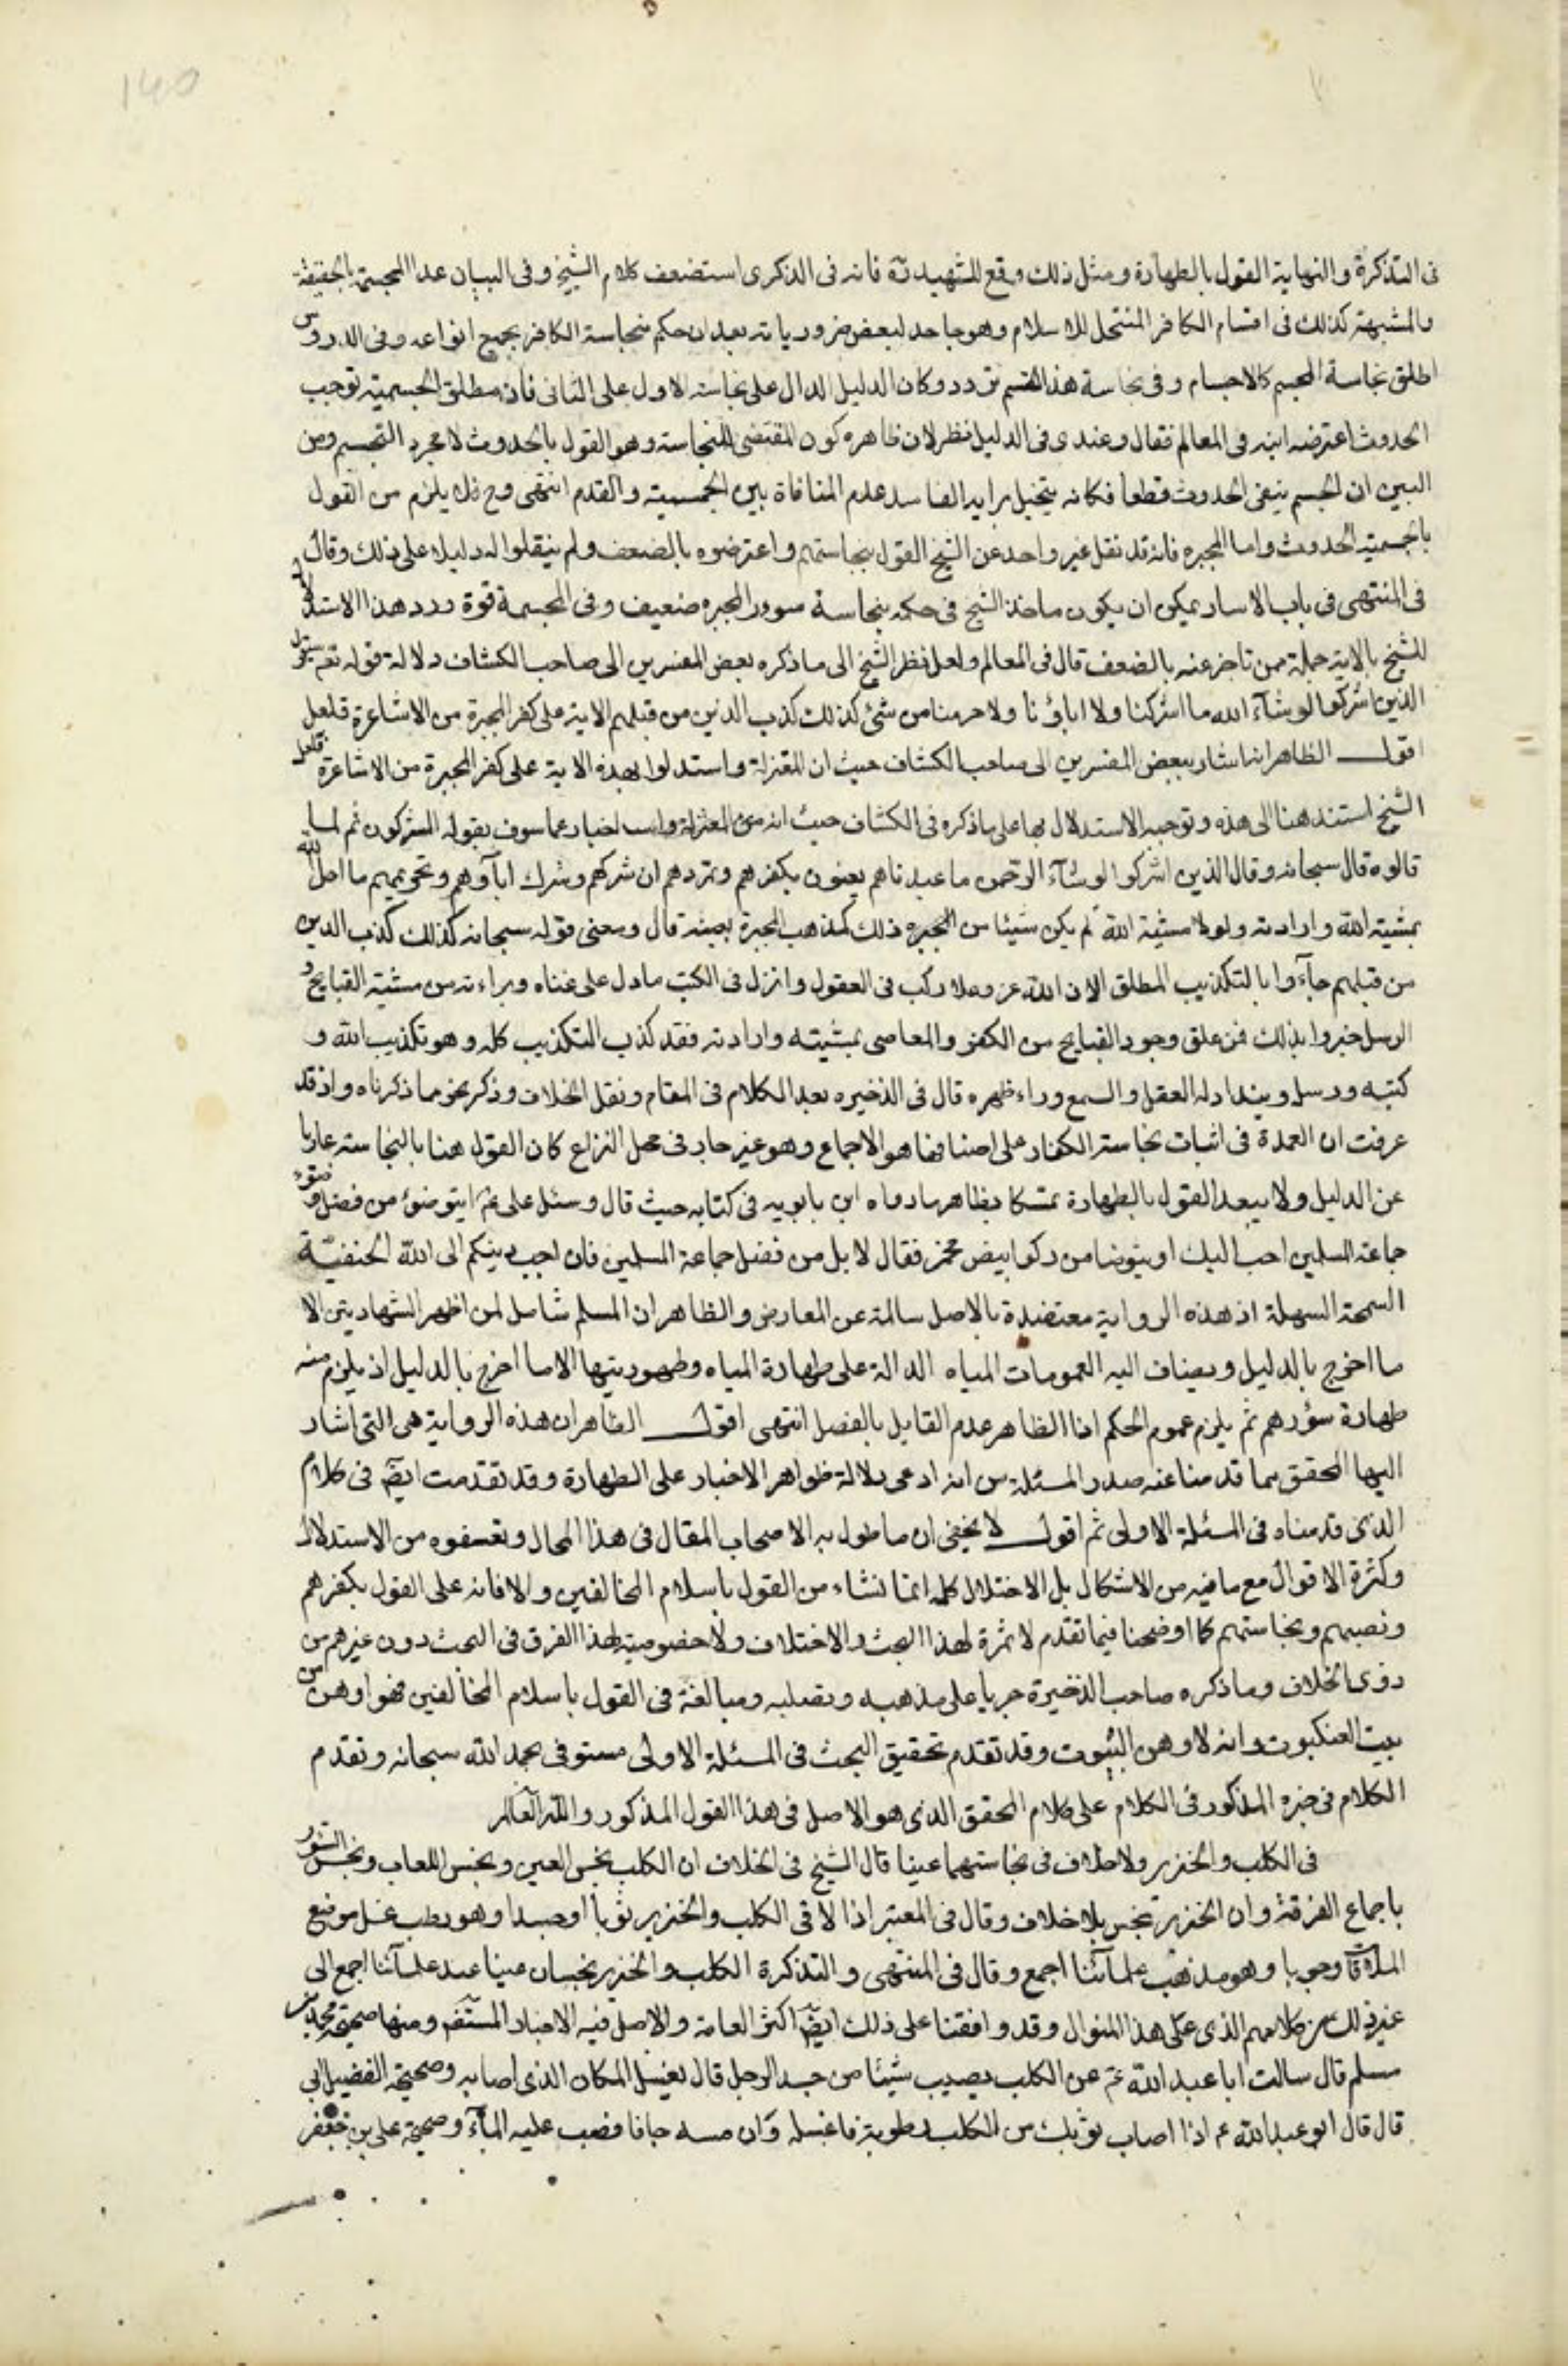 140
فى التذكرة والنهاية القول بالطهارة ومثل ذلك وقع للشهيد ره فانه فى الذكرى استضعف كلام الشيخ وفى البيان عد المجسمة بالحقيقة
والمشبهة كذلك فى اقسام الكافر المنتحل للاسلام وهو جاحد لبعض ضرورياته بعد ان حكم بنجاسة الكافر بجميع انواعه وفى الدروس
اطلق نجاسة المجسم كالاجسام وفى نجاسة هذا القسم تردد وكان الدليل الدال على نجاسة الاول على الثانى فان مطلق الجسمية توجب
الحدوث اعترضه ابنه فى المعالم فقال وعندى فى الدليل نظر لان ظاهره كون المقتضى للنجاسة وهو القول بالحدوث لا مجرد التجسيم ومن
البين ان الجسم ينفى الحدوث قطعا فكانه يتخيل برايه الفاسد عدم المنافاة بين الجسمية والقدم انتهى وح فلا يلزم من القول
بالجسمية الحدوث واما المجبره فانه قد نقل غير واحد عن الشيخ القول بنجاستهم واعترضوه بالضعف ولم ينقلوا له دليلا على ذلك وقال
فى المنتهى فى باب الاسار يمكن ان يكون ماخذ الشيخ فى حكمه بنجاسة سور المجبره ضعيف وفى المجسمة قوة ورد هذا الاستدلال
للشيخ بالاية جملة ممن تاخر عنه بالضعف قال فى المعالم ولعل نظر الشيخ الى ما ذكره بعض المفسرين الى صاحب الكشاف دلالة قوله تعه سيقول
الذين اشركوا لو شآء الله ما اشركنا ولا اباؤنا ولا حرمنا من شئ كذلك كذب الذين من قبلهم الاية على كفر المجبرة من الاشاعرة فلعل
اقول الظاهر انه اشار ببعض المفسرين الى صاحب الكشاف حيث ان المعتزلة واستدلوا بهذه الاية على كفر المجبرة من الاشاعرة فلعل
الشيخ استند هنا الى هذه وتوجيه الاستدلال بها على ما ذكره فى الكشاف حيث انه من المعتزلة اخبار عما سوف يقوله المشركون ثم لما
قالوه قال سبحانه وقال الذين اشركوا لو شآء الرحمن ما عبدناهم يعنون بكفرهم وتمردهم ان شركهم وشرك ابآؤهم وتحريمهم ما احل الله
بمشية الله وارادته ولولا مشية الله لم يكن شيئا من ذلك كمذهب المجبرة بعينه قال ومعنى قوله سبحانه كذلك كذب الذين
من قبلهم جآءوا بالتكذيب المطلق لان الله عز وعلا ركب فى العقول وانزل فى الكتب ما دل على غناه وبراءته من مشية القبايح و
الرسل خبروا بذلك فمن علق وجود القبايح من الكفر والمعاصى بمشيته وارادته فقد كذب التكذيب كله وهو تكذيب الله و
كتبه ورسله ونبذ ادلة العقل والسمع وراء ظهره قال فى الذخيره بعد الكلام فى المقام ونقل الخلاف وذكر نحو مما ذكرناه واذ قد
عرفت ان العمدة فى اثبات نجاسة الكفار على اصنافها هو الاجماع وهو غير جار فى محل النزاع كان القول هنا بالنجاسة عاريا
عن الدليل ولا يبعد القول بالطهارة تمسكا بظاهر ما رواه ابن بابويه فى كتابه حيث قال وسئل على ع ايتوضئ من فضل وضوء
جماعة المسلمين احب اليك او يتوضا من ركو ابيض مخمر فقال لا بل من فضل جماعة المسلمين فان احب دينكم الى الله الحنفية
السمحة السهلة اذ هذه الرواية معتضدة بالاصل سالمة عن المعارض والظاهر ان المسلم شامل لمن اظهر الشهادتين الا
ما اخرج بالدليل ويضاف اليه العمومات المياه الدالة على طهارة المياه وطهوريتها الا ما اخرج بالدليل اذ يلزم منه
طهارة سؤرهم ثم يلزم عموم الحكم اذ الظاهر عدم القايل بالفصل انتهى اقول الظاهر ان هذه الرواية هى التى اشار
اليها المحقق بما قدمنا عنه صدر المسئلة من انه ادعى دلالة ظواهر الاخبار على الطهارة وقد تقدمت ايضا فى كلام
الذى قدمناه فى المسئلة الاولى ثم اقول لا يخفى ان ما طول به الاصحاب المقال فى هذا المجال وتعسفوه من الاستدلال
وكثرة الاقوال مع ما فيه من الاشكال بل الاختلال كله انما نشاء من القول باسلام المخالفين والا فانه على القول بكفرهم
ونصبهم ونجاستهم كما اوضحنا فيما تقدم لا ثمرة لهذا البحث والاختلاف ولا خصوصية لهذا الفرق فى البحث دون غيرهم من
ذوى الخلاف وما ذكره صاحب الذخيرة جريا على مذهبه وتصلبه ومبالغة فى القول باسلام المخالفين فهو اوهن من
بيت العنكبوت وانه لاوهن البيوت وقد تقدم تحقيق البحث فى المسئلة الاولى مستوفى بحمد الله سبحانه وتقدم
الكلام فى خبره المذكور فى الكلام على كلام المحقق الذى هو الاصل فى هذا القول المذكور والله العالم
فى الكلب والخنزير ولا خلاف فى نجاستهما عينا قال الشيخ فى الخلاف ان الكلب نجس العين ونجس اللعاب ونجس السور
باجماع الفرقة وان الخنزير نجس بلا خلاف وقال فى المعتبر اذا لاقى الكلب والخنزير ثوبا او جسدا وهو رطب غسل موضع
الملاقاة وجوبا وهو مذهب علمآئنا اجمع وقال فى المنتهى والتذكرة الكلب والخنزير نجسان عينا عند علمآئنا اجمع الى
غير ذلك من كلامهم الذى على هذا المنوال وقد وافقنا على ذلك ايضا اكثر العامة والاصل فيه الاخبار المستفيضه ومنها صحيحة محمد بن
مسلم قال سالت ابا عبد الله ع عن الكلب يصيب شيئا من جسد الرجل قال يغسل المكان الذى اصابه وصحيحة الفضيل ابى
قال قال ابو عبد الله ع اذا اصاب ثوبك من الكلب رطوبة فاغسله وان مسه جافا فصب عليه المآء وصحيحة على بن جعفر